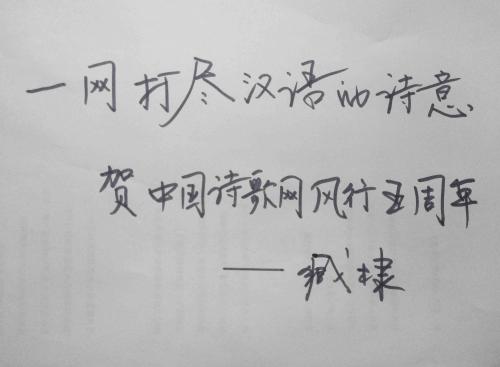 一网打尽汉语的诗意
贺中国诗歌网风行五周年
——臧棣